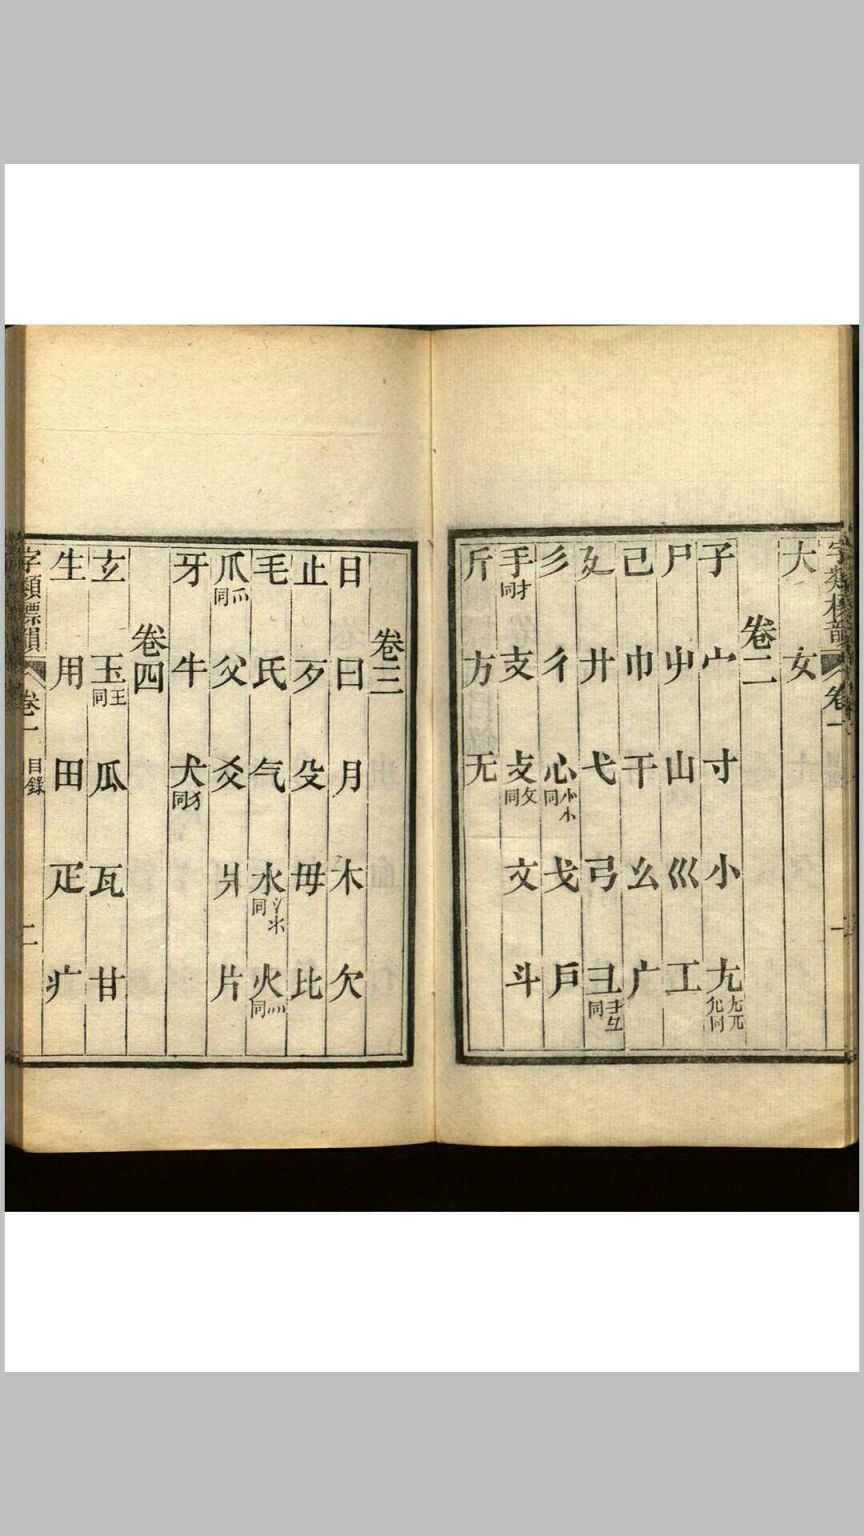 字類標韻 卷一
大 女
卷二
子 宀 寸 小 尢 尣兀𡯂同
尸 屮 山 巛 工
己 巾 干 幺 广
廴 廾 弋 弓 彐 彑同
彡 彳 心 忄㣺同 戈 戶
手 扌同 支 攴 攵同 文 斗
斤 方 无
卷三
日 曰 月 木 欠
止 歹 殳 毋 比
毛 氏 气 水 氵氺同 火 灬同
爪 爫同 父 爻 爿 片
牙 牛 犬 犭同
卷四
玄 玉 王同 瓜 瓦 甘
生 用 田 疋 疒
字類標韻 卷一 目錄 二